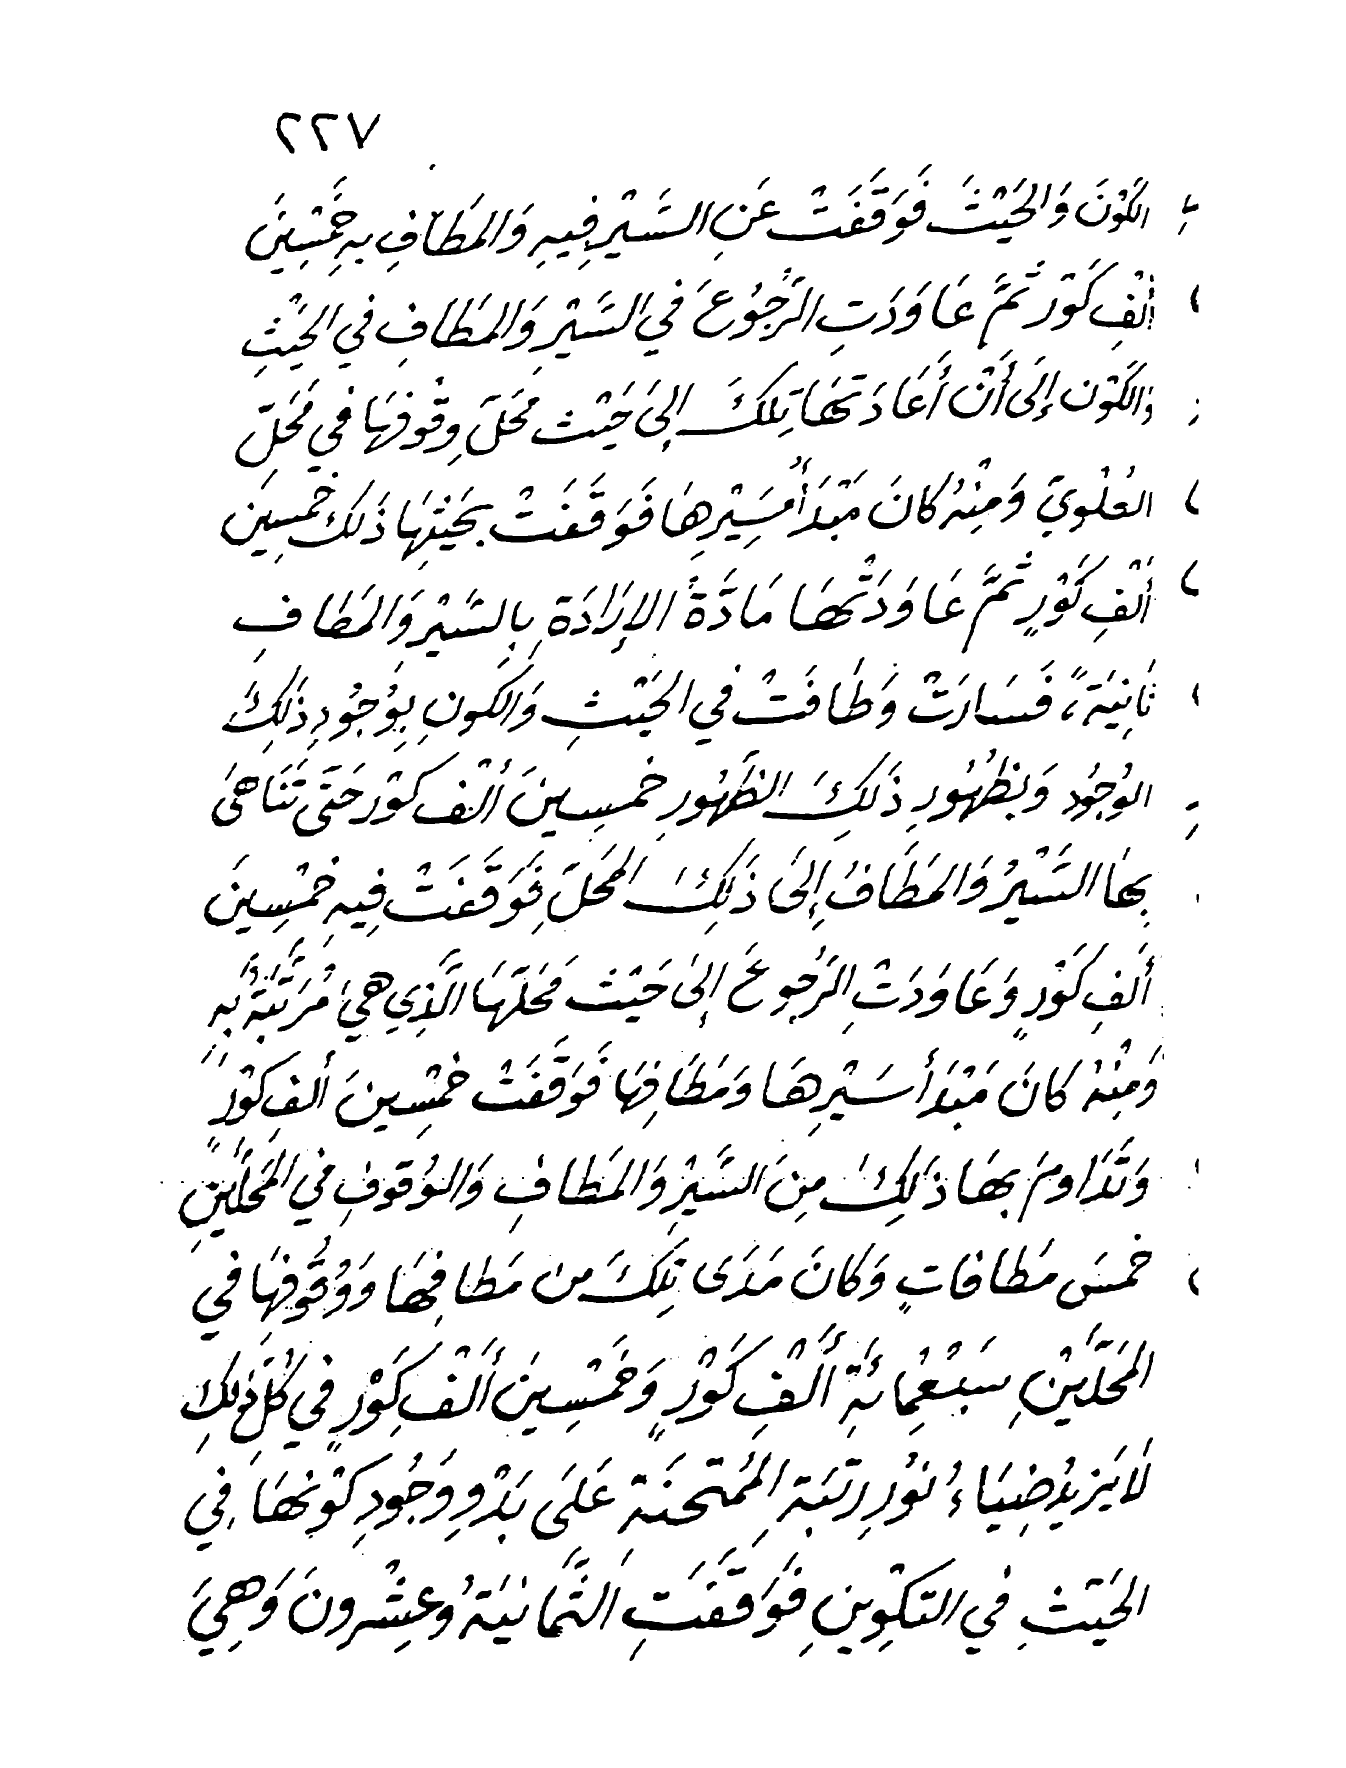 ٢٢٧
الكَوْنَ وَالحَيْثَ فَوَقَفَتْ عَنِ السَّيْرِ فِيهِ وَالمَطَافِ بِهِ خَمْسِينَ
أَلْفِ كَوْر ثُمَّ عَاوَدَتِ الرُّجُوُعَ في السَّيْرِ وَالمَطَافِ في الحَيْثِ
وَالكَوْن إِلَى أَنْ أَعَادَتهَا تِلكَ إِلىَ حَيْث مَحَلّ وِقُوفهَا في مَحَلِّ
العُلْوِيّ وَمِنْهُ كَانَ مَبْدَأُ مَسِيْرِهَا فَوَقَّفَتْ بحَيْثِهَا ذَلك خمسِين
أَلْفِ كَوْرٍ ثُمَّ عَاوَدَتْهَا مَادَّةُ الإِرَادَةِ بِالسَّيْرِ وَالمَطَافِ
ثَانِيَة، فَسَارَتْ وَطَافَتْ في الحَيْثِ وَالكَونِ بِوُجُودِ ذَلِكَ
الوُجُود وَبظُهُورِ ذَلِكَ الظُّهُورِ خمسِينَ ألْف كَوْر حَتىَّ تَنَاهىَ
بِهَا السَّيْرُ وَالمَطَافُ إِلىَ ذَلِكَ المَحَلّ فَوَقَفَتْ فِيهِ خمْسِينَ
أَلفِ كَوْرٍ وَعَاوَدَتْ الرّجُوعَ إِلىَ حَيْث مَحَلّهَا الَّذِي هيَ مُرَتَّبَةٌ بِهِ
وَمِنْهُ كَانَ مَبْدَأ سَيْرِهَا وَمَطَافِهَا فَوَقَّفَتْ خمْسِينَ ألفِ كَوْرٍ
وَتَدَاوم بهَا ذَلِكَ مِنَ السَّيرِ وَالمَطَافِ وَالوُقوفِ في المَحَلَّينِ
خمسَ مَطَافَاتٍ وَكَانَ مَدَى تِلكَ من مَطَافِهَا وَوُقُوفِهَا في
المَحَلّيْنِ سَبْعِمُائَةِ أَلْفِ كَوْرٍ وَخَمْسِينَ أَلْفَ كَوْرٍ في كُلِّ ذَلِكَ
لاَ يَزيدُ ضِيَاءُ نُورِ رتبَة المُمْتَحنَةِ عَلَى بَدْوِ وَجُودِ كَوْنهَا في
الحَيْثِ في التكْوِينِ فَوَقَّفَتِ الثَّمَانيَةُ وعِشْرونَ وَهِيَ